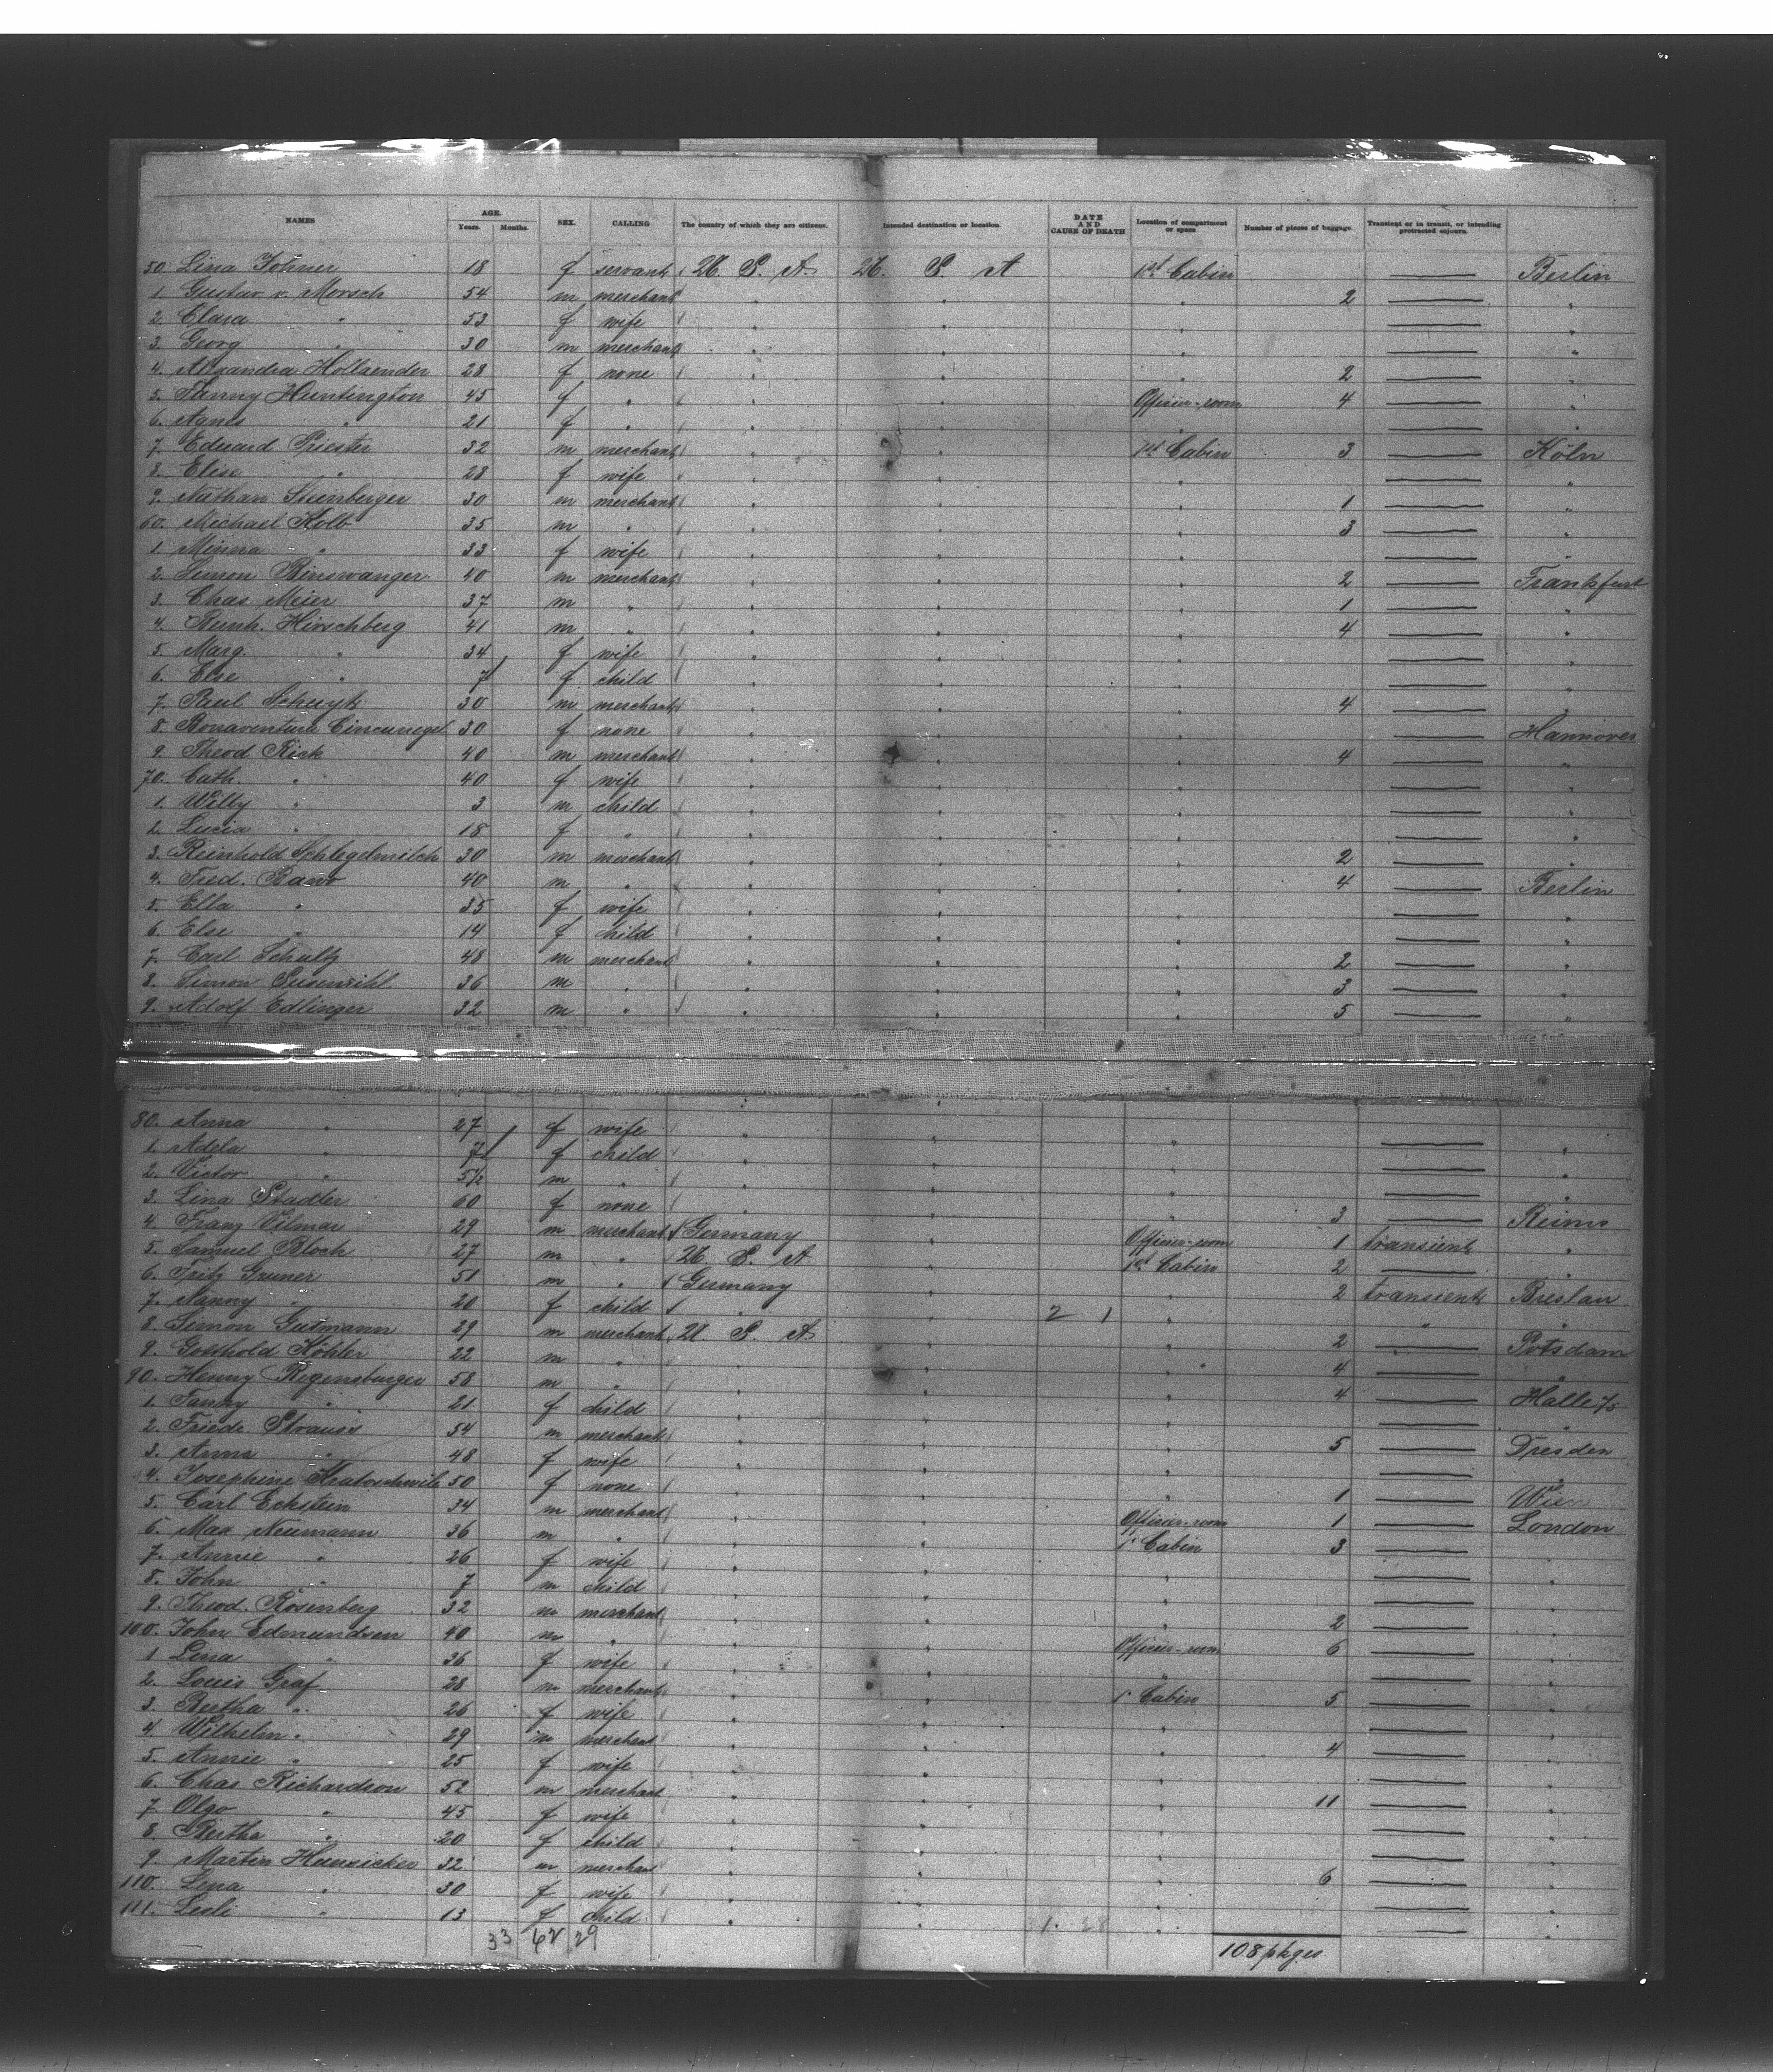 NAMES AGE. Years. Months. SEX. CALLING The country of which they are citizens. Intended destination or location. DATE AND CAUSE OF DEATH Location of compartment or space Number of pieces of baggage. Transient or in transit, or intending protracted sojourn.
50. Lina Johner 18 f servant U. S. A. U. S. A 1st Cabin — Berlin
1. Gustav v. Morsch 54 m merchant " " " 2 — "
2. Clara " 53 f wife " " " — "
3. Georg " 30 m merchant " " " — "
4. Alexandra Hollaender 28 f none " " " 2 — "
5. Fanny Huntington 45 f " " " Officier-room 4 — "
6. Agnes " 21 f " " " " — "
7. Eduard Priester 32 m merchant " " 1st Cabin 3 — Köln
8. Elise " 28 f wife " " " — "
9. Nathan 30 m merchant " " " 1 — "
60. Michael Kolb 35 m " " " " 3 — "
1. Minna " 33 f wife " " " — "
2. Simon Binswanger 40 m merchant " " " 2 — Frankfurt
3. Chas. Meier 37 m " " " " 1 — "
4. Hirschberg 41 m " " " " 4 — "
5. Marg. " 34 f wife " " " — "
6. Else " 7 f child " " " — "
7. Paul 30 m merchant " " " 4 — "
8. Bonaventura 30 f none " " " — Hannover
9. Theod Rick 40 m merchant " " " 4 — "
70. Cath. " 40 f wife " " " — "
1. Willy " 3 m child " " " — "
2. Lucia " 18 f " " " " — "
3. Reinhold Schlegelmilch 30 m merchant " " " 2 — "
4. Fred. 40 m " " " " 4 — Berlin
5. Ella " 35 f wife " " " — "
6. Else " 14 f child " " " — "
7. Carl Schultz 48 m merchant " " " 2 — "
8. Simon 36 m " " " " 3 — "
9. Adolf Edlinger 32 m " " " " 5 — "
80. Anna " 27 f wife " " " — "
1. Adela " 7 f child " " " — "
2. Victor " 5 1/2 m " " " " — "
3. Lina Stadler 60 f none " " " 3 — Reims
4. Franz Vilmar 29 m merchant Germany " Officier-room 1 transient "
5. Samuel Bloch 27 m " U. S. A " 1st Cabin 2 — "
6. Fritz Gruner 51 m " Germany " " 2 transient Breslau
7. Nanny " 20 f child " " 2 1 " " "
8. Simon Gutmann 29 m merchant U. S. A. " " 2 — Potsdam
9. Gotthold Köhler 22 m " " " " 4 — "
90. Henny Regensburger 58 m " " " " 4 — Halle
1. Fanny " 21 f child " " " — "
2. Friedr. Strauss 54 m merchant " " " 5 — Dresden
3. Anna " 48 f wife " " " — "
4. Josephine Kratoschwile 50 f none " " " 1 — Wien
5. Carl Eckstein 34 m merchant " " Officier-room 1 — London
6. Max Neumann 36 m " " " 1' Cabin 3 — "
7. Annie " 26 f wife " " " — "
8. John " 7 m child " " " — "
9. Theod. Rosenberg 32 m merchant " " " 2 — "
100. John Edmundsen 40 m " " " Officier-room 6 — "
1 Lena " 36 f wife " " " — "
2. Louis Graf 28 m merchant " " 1' Cabin 5 — "
3. Bertha " 26 f wife " " " — "
4. Wilhelm " 29 m merchant " " " 4 — "
5. Annie " 25 f wife " " " — "
6. Chas Richardson 52 m merchant " " " 11 — "
7. Olga " 45 f wife " " " — "
8. Bertha " 20 f child " " " — "
9. Martin Hunsicker 32 m merchant " " " 6 — "
110. Lena " 30 f wife " " " — "
111. Lesli " 13 f child " " 1. 28 " — "
33 62 29 108 pkges